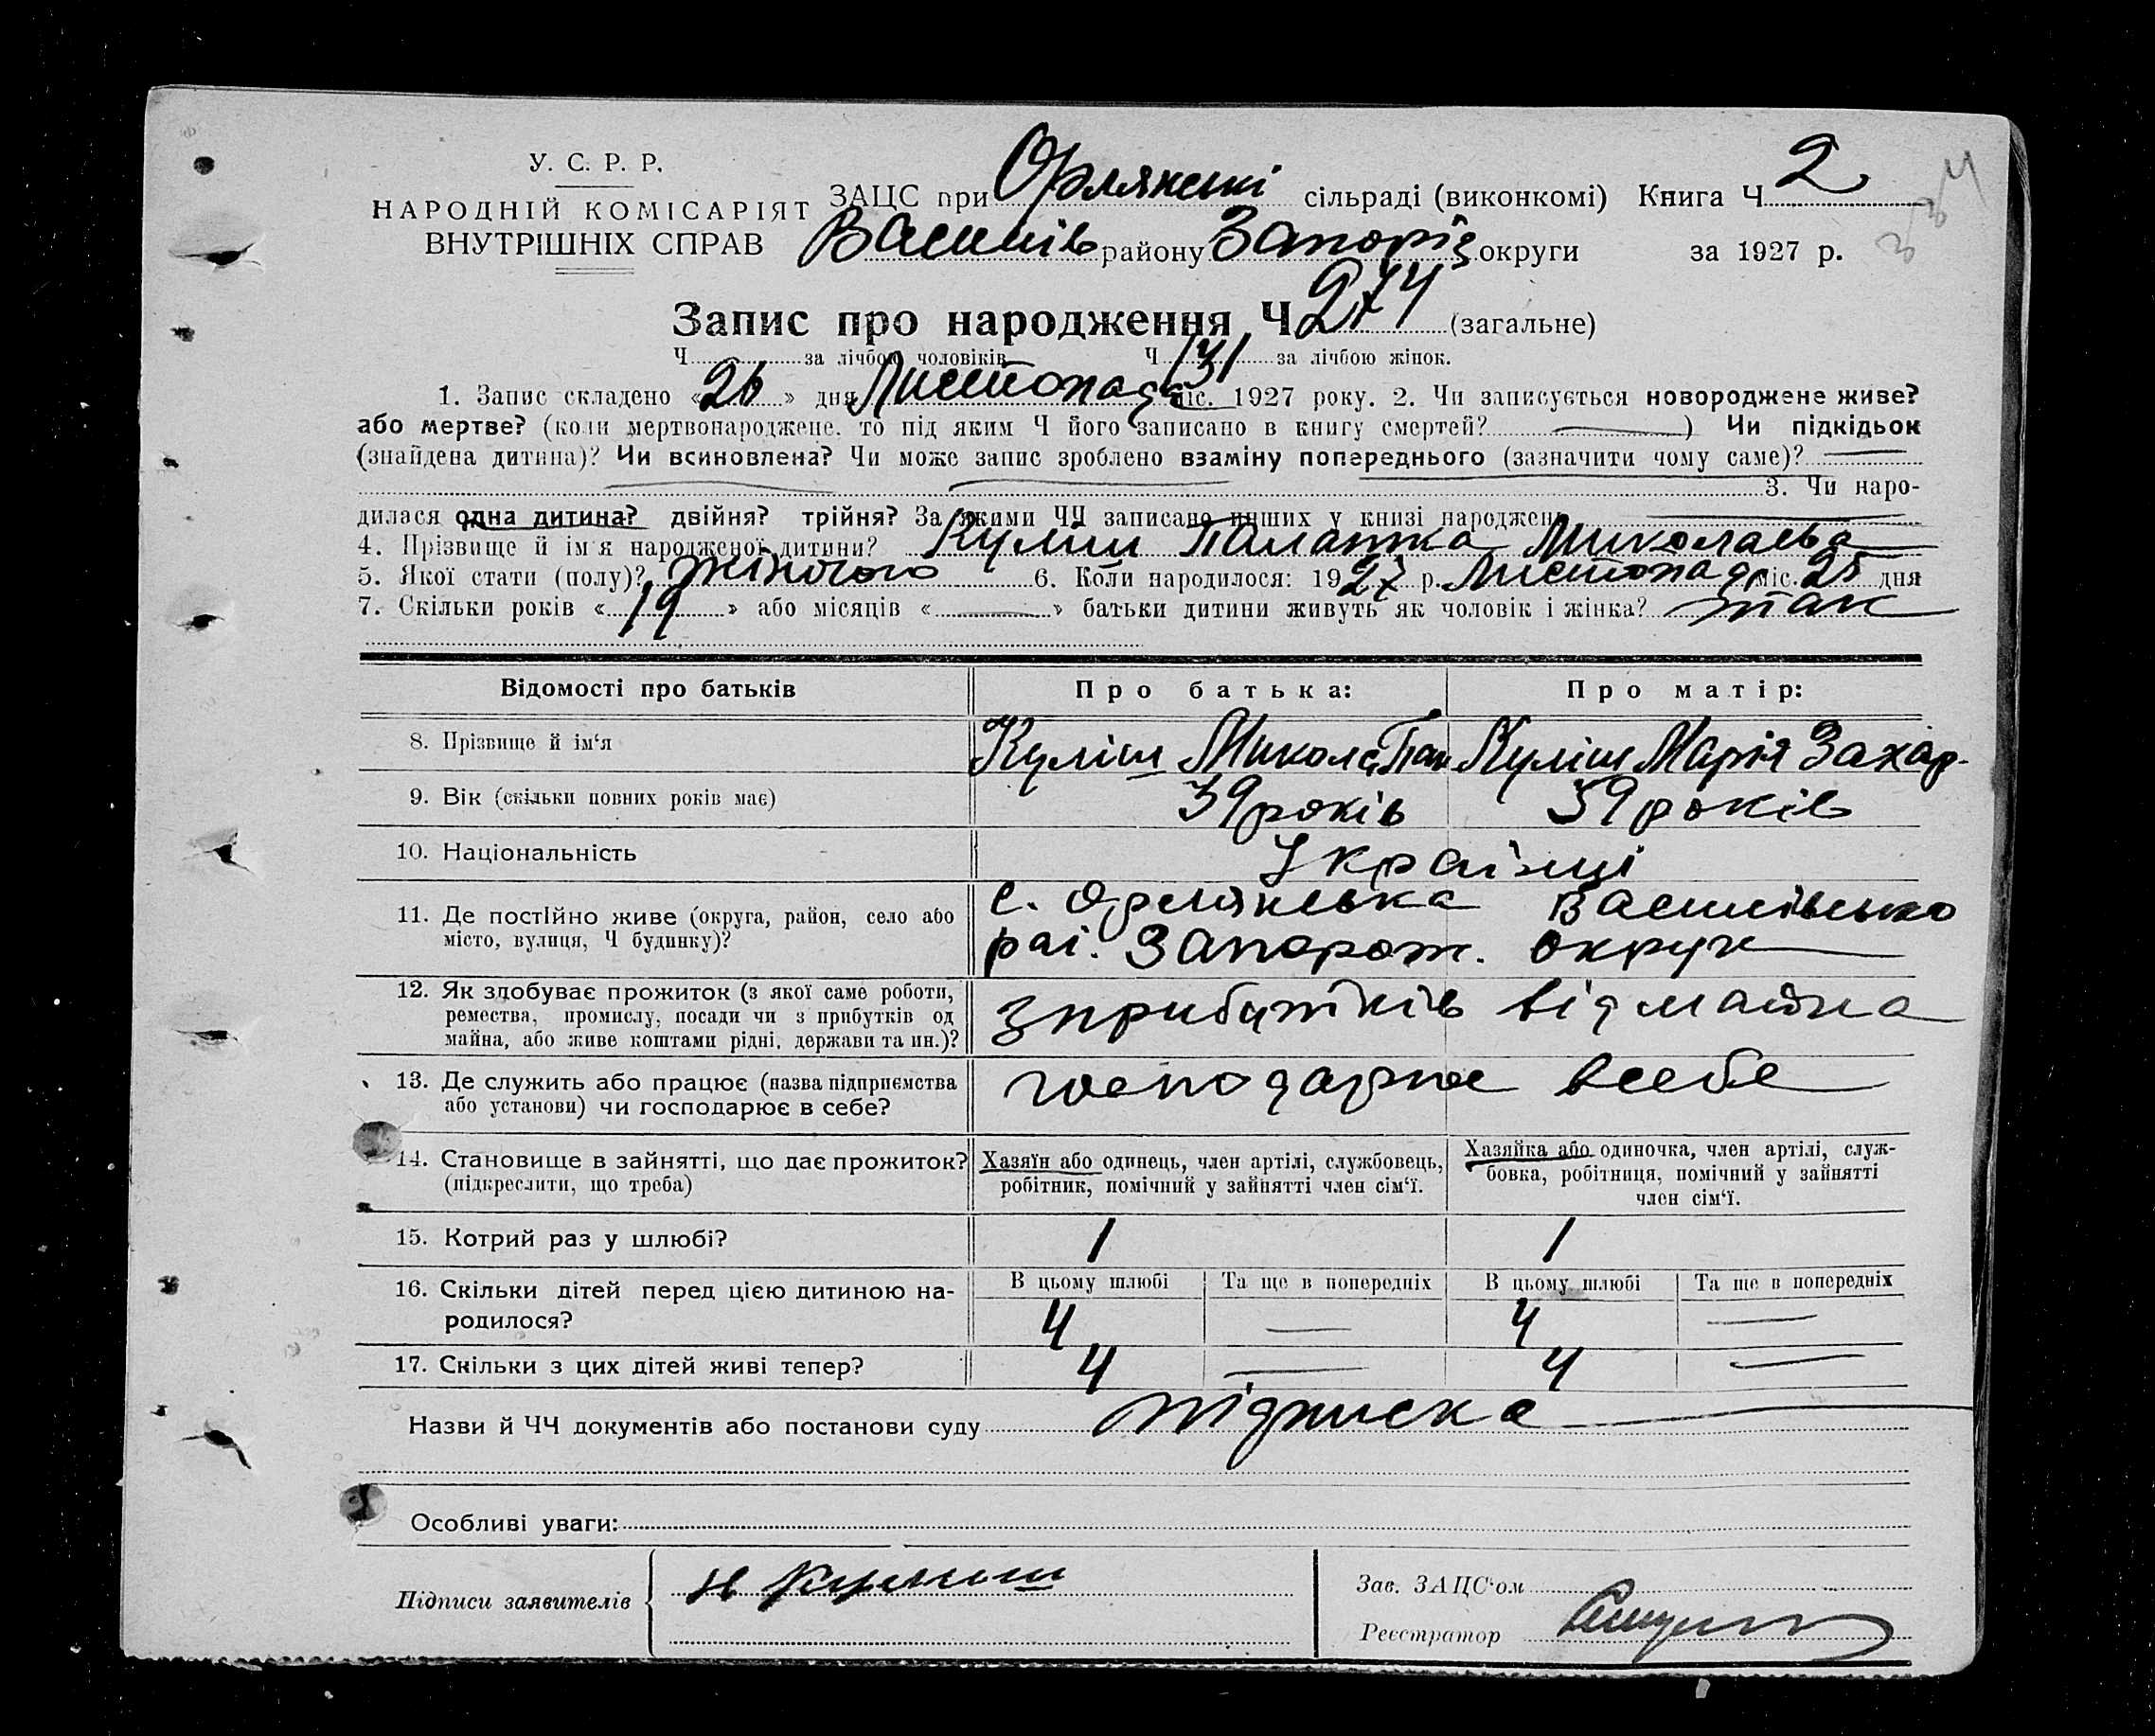 У. С. Р. Р.
НАРОДНІЙ КОМІСАРІЯТ
ВНУТРІШНІХ СПРАВ
ЗАЦС при Орлянські сільраді (виконкомі) Книга Ч 2
Василів району Запоріз округи за 1927 р.
Запис про народження Ч 274 (загальне)
Ч за лічбою чоловіків Ч 131 за лічбою жінок.
1. Запис складено «26» дня Листопада міс. 1927 року. 2. Чи записується новороджене живе?
або мертве? (коли мертвонароджене, то під яким Ч його записано в книгу смертей? — ) Чи підкідьок
(знайдена дитина)? Чи всиновлена? Чи може запис зроблено взаміну попереднього (зазначити чому саме)? —
3. Чи наро-
дилася одна дитина? двійня? трійня? За якими ЧЧ записано инших у книзі народжень —
4. Прізвище й ім'я народженої дитини? Куліш Миколаєва
5. Якої стати (полу)? жіночого 6. Коли народилося: 1927 р. Листопада міс. 25 дня
7. Скільки років «19» або місяців « — » батьки дитини живуть як чоловік і жінка? так
Відомості про батьків Про батька: Про матір:
8. Прізвище й ім'я Куліш Микола Пан Куліш Марія Захар.
9. Вік (скільки повних років має) 39 років 39 років
10. Національність Українці
11. Де постійно живе (округа, район, село або
місто, вулиця, Ч будинку)?
с. Орлянська Василівсько
раі. Запорож. округи
12. Як здобуває прожиток (з якої саме роботи,
ремества, промислу, посади чи з прибутків од
майна, або живе коштами рідні, держави та ин.)?
зприбутків від майна
13. Де служить або працює (назва підприємства
або установи) чи господарює в себе?
господарює всебе
14. Становище в зайнятті, що дає прожиток?
(підкреслити, що треба)
Хазяїн або одинець, член артілі, службовець,
робітник, помічний у зайнятті член сім'ї.
Хазяйка або одиночка, член артілі, служ-
бовка, робітниця, помічний у зайнятті
член сім'ї.
15. Котрий раз у шлюбі? 1 1
16. Скільки дітей перед цією дитиною на-
родилося?
В цьому шлюбі Та ще в попередніх В цьому шлюбі Та ще в попередніх
4 — 4 —
17. Скільки з цих дітей живі тепер? 4 — 4 —
Назви й ЧЧ документів або постанови суду підписка
Особливі уваги:
Підписи заявителів Н Кулиш
Зав. ЗАЦС'ом
Реєстратор